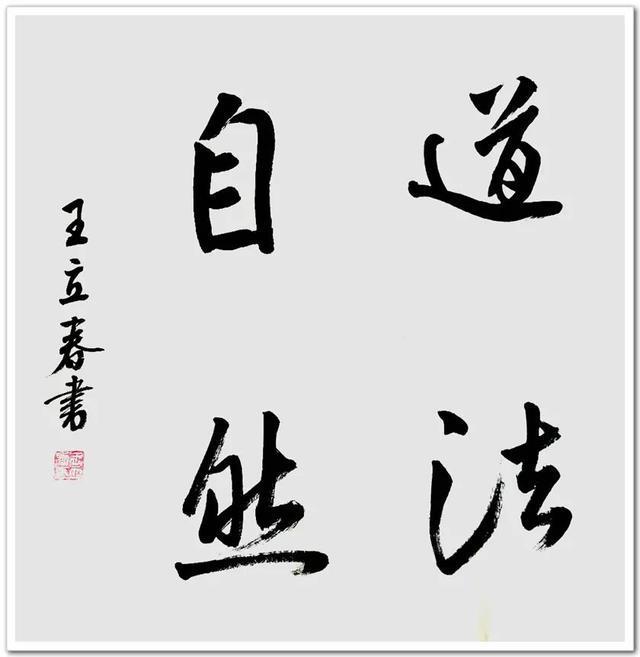 道法
自然
王立春书